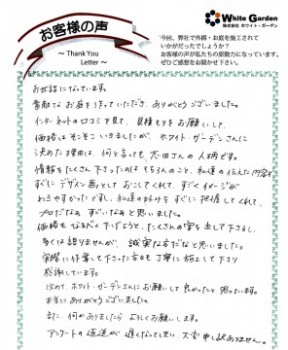 お客様の声
～ Thank You
Letter ～
White Garden
株式会社 ホワイト・ガーデン
今回、弊社で外構・お庭を施工されて
いかがだったでしょうか？
お客様の声が私たちの原動力になっています。
ぜひご感想をお聞かせ下さい。
お世話になっています。
素敵なお庭を造っていただき、ありがとうございました。
インターネットの口コミで見て、見積もりをお願いして
価格はそこそこいきましたが、ホワイト・ガーデンさんに
決めた理由は、何と言っても、太田さんの人柄です。
情報をたくさん下さったのはもちろんのこと、私達の伝えた内容を
すぐにデザイン画としておこしてくれて、すぐイメージが
わきやすかったですし、私達の好みをすぐに把握してくれて、
プロだなぁ すごいなぁと思いました。
価格もなるべく下げようと、たくさんの案を出して下さるし、
多くは語りませんが、誠実な方だなと思いました。
実際に作業して下さった方も丁寧に施工して下さり
感謝しています。
改めて、ホワイト・ガーデンさんにお願いして良かったと思っています。
本当にありがとうございました。
また 何かありましたら よろしくお願いします。
アンケートの返送が遅くなってしまい、大変申し訳ありません。